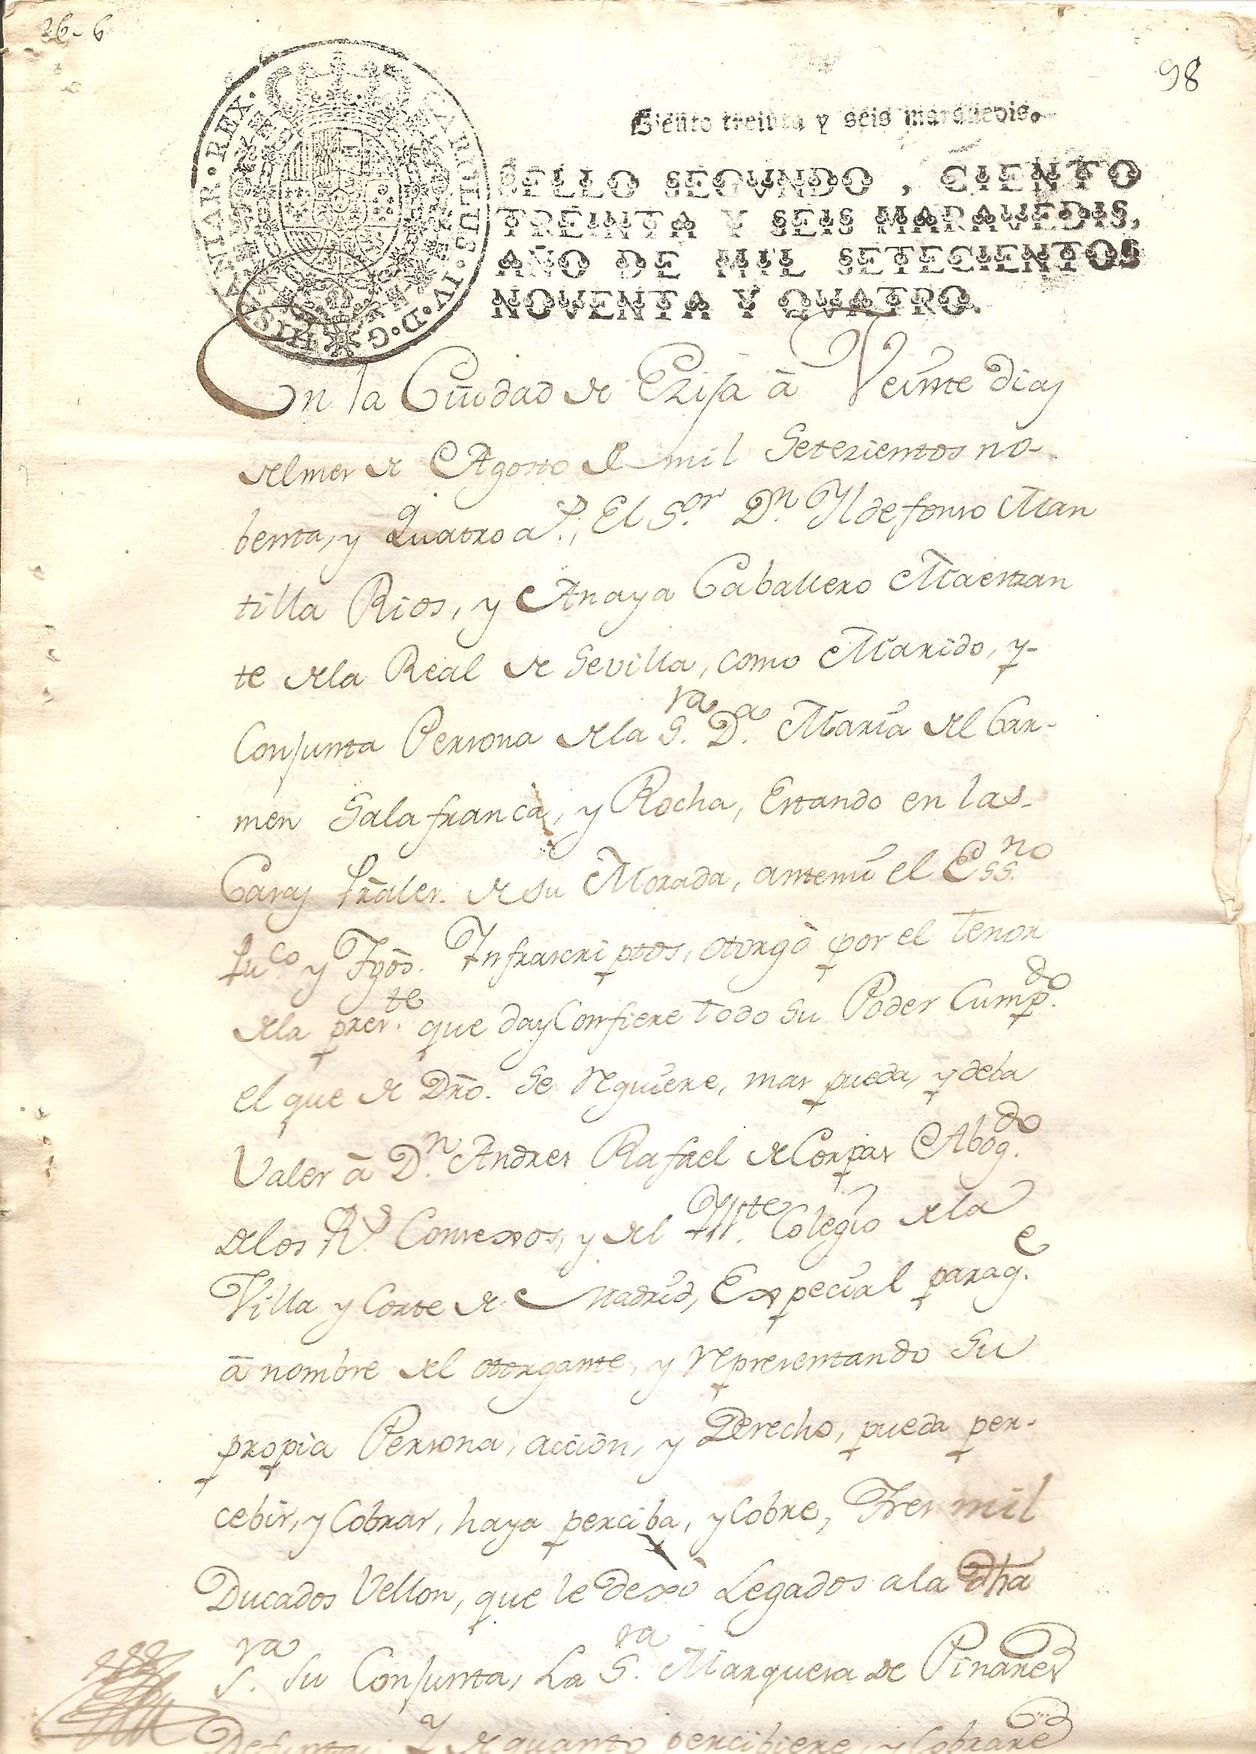 26-6
98
CAROLUS·IV·D·G·HISPANIAR·REX·
Ciento treinta y seis maravedis.
SELLO SEGVNDO, CIENTO
TREINTA Y SEIS MARAVEDIS,
AÑO DE MIL SETECIENTOS
NOVENTA Y QVATRO.
En la Ciudad de Ezija à Veinte dias
delmes de Agosto de mil Setezientos no-
benta, y Quatro a.s, El S.or D.n Yldefonso Man
tilla Rios, y Anaya Caballero Maestran
te dela Real de Sevilla, como Marido, y
Conjunta Persona dela S.ra D.a Maria del Car-
men Salafranca, y Rocha, Estando en las
Casas prales. de su Morada, antemi el Ess.no
pu.co y Tgos. Infrascriptos, otorgò por el tenor
dela pres.te que dayConfiere todo su Poder Cump.do
el que de Dro. Se requiere, mas pueda, y deba
Valer à D.n Andres Rafael deCorpas Abog.do
delos R.s Consexos, y del Ill.te Colegio dela
Villa y Corte de Madrid, Expecial parag.e
à nombre del otorgante, y representando Su
propia Persona, accion, y Derecho, pueda per-
cebir, y Cobrar, haya perciba, y Cobre, Tres mil
Ducados Vellon, que le dexò Legados a la dha
S.ra su Conjunta, La S.ra Marquesa de Pinares
Defunta; Y de quanto percibiere, y Cobrare